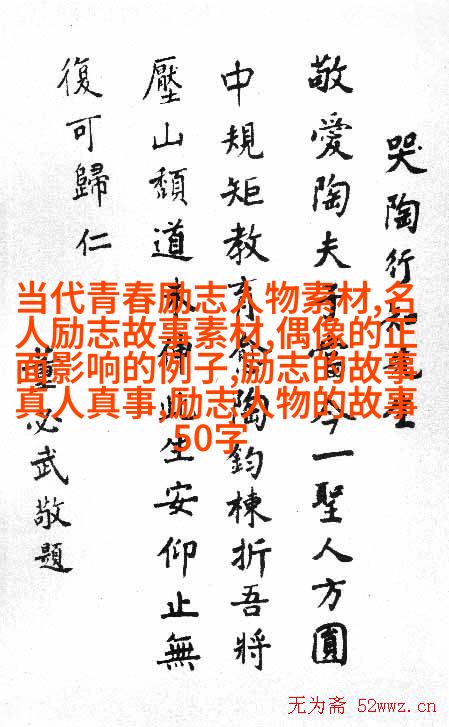 哭陶行知先生
敬愛陶夫子當今一聖人方圓
中規矩教育陶鈞棟折吾將
壓山頹道未伸此生安仰止無
復可歸仁
董必武敬題
当代青春励志人物素材,名
人励志故事素材,偶像的正
面影响的例子,励志的故事
真人真事,励志人物的故事
50字
无为斋 52wwz.cn